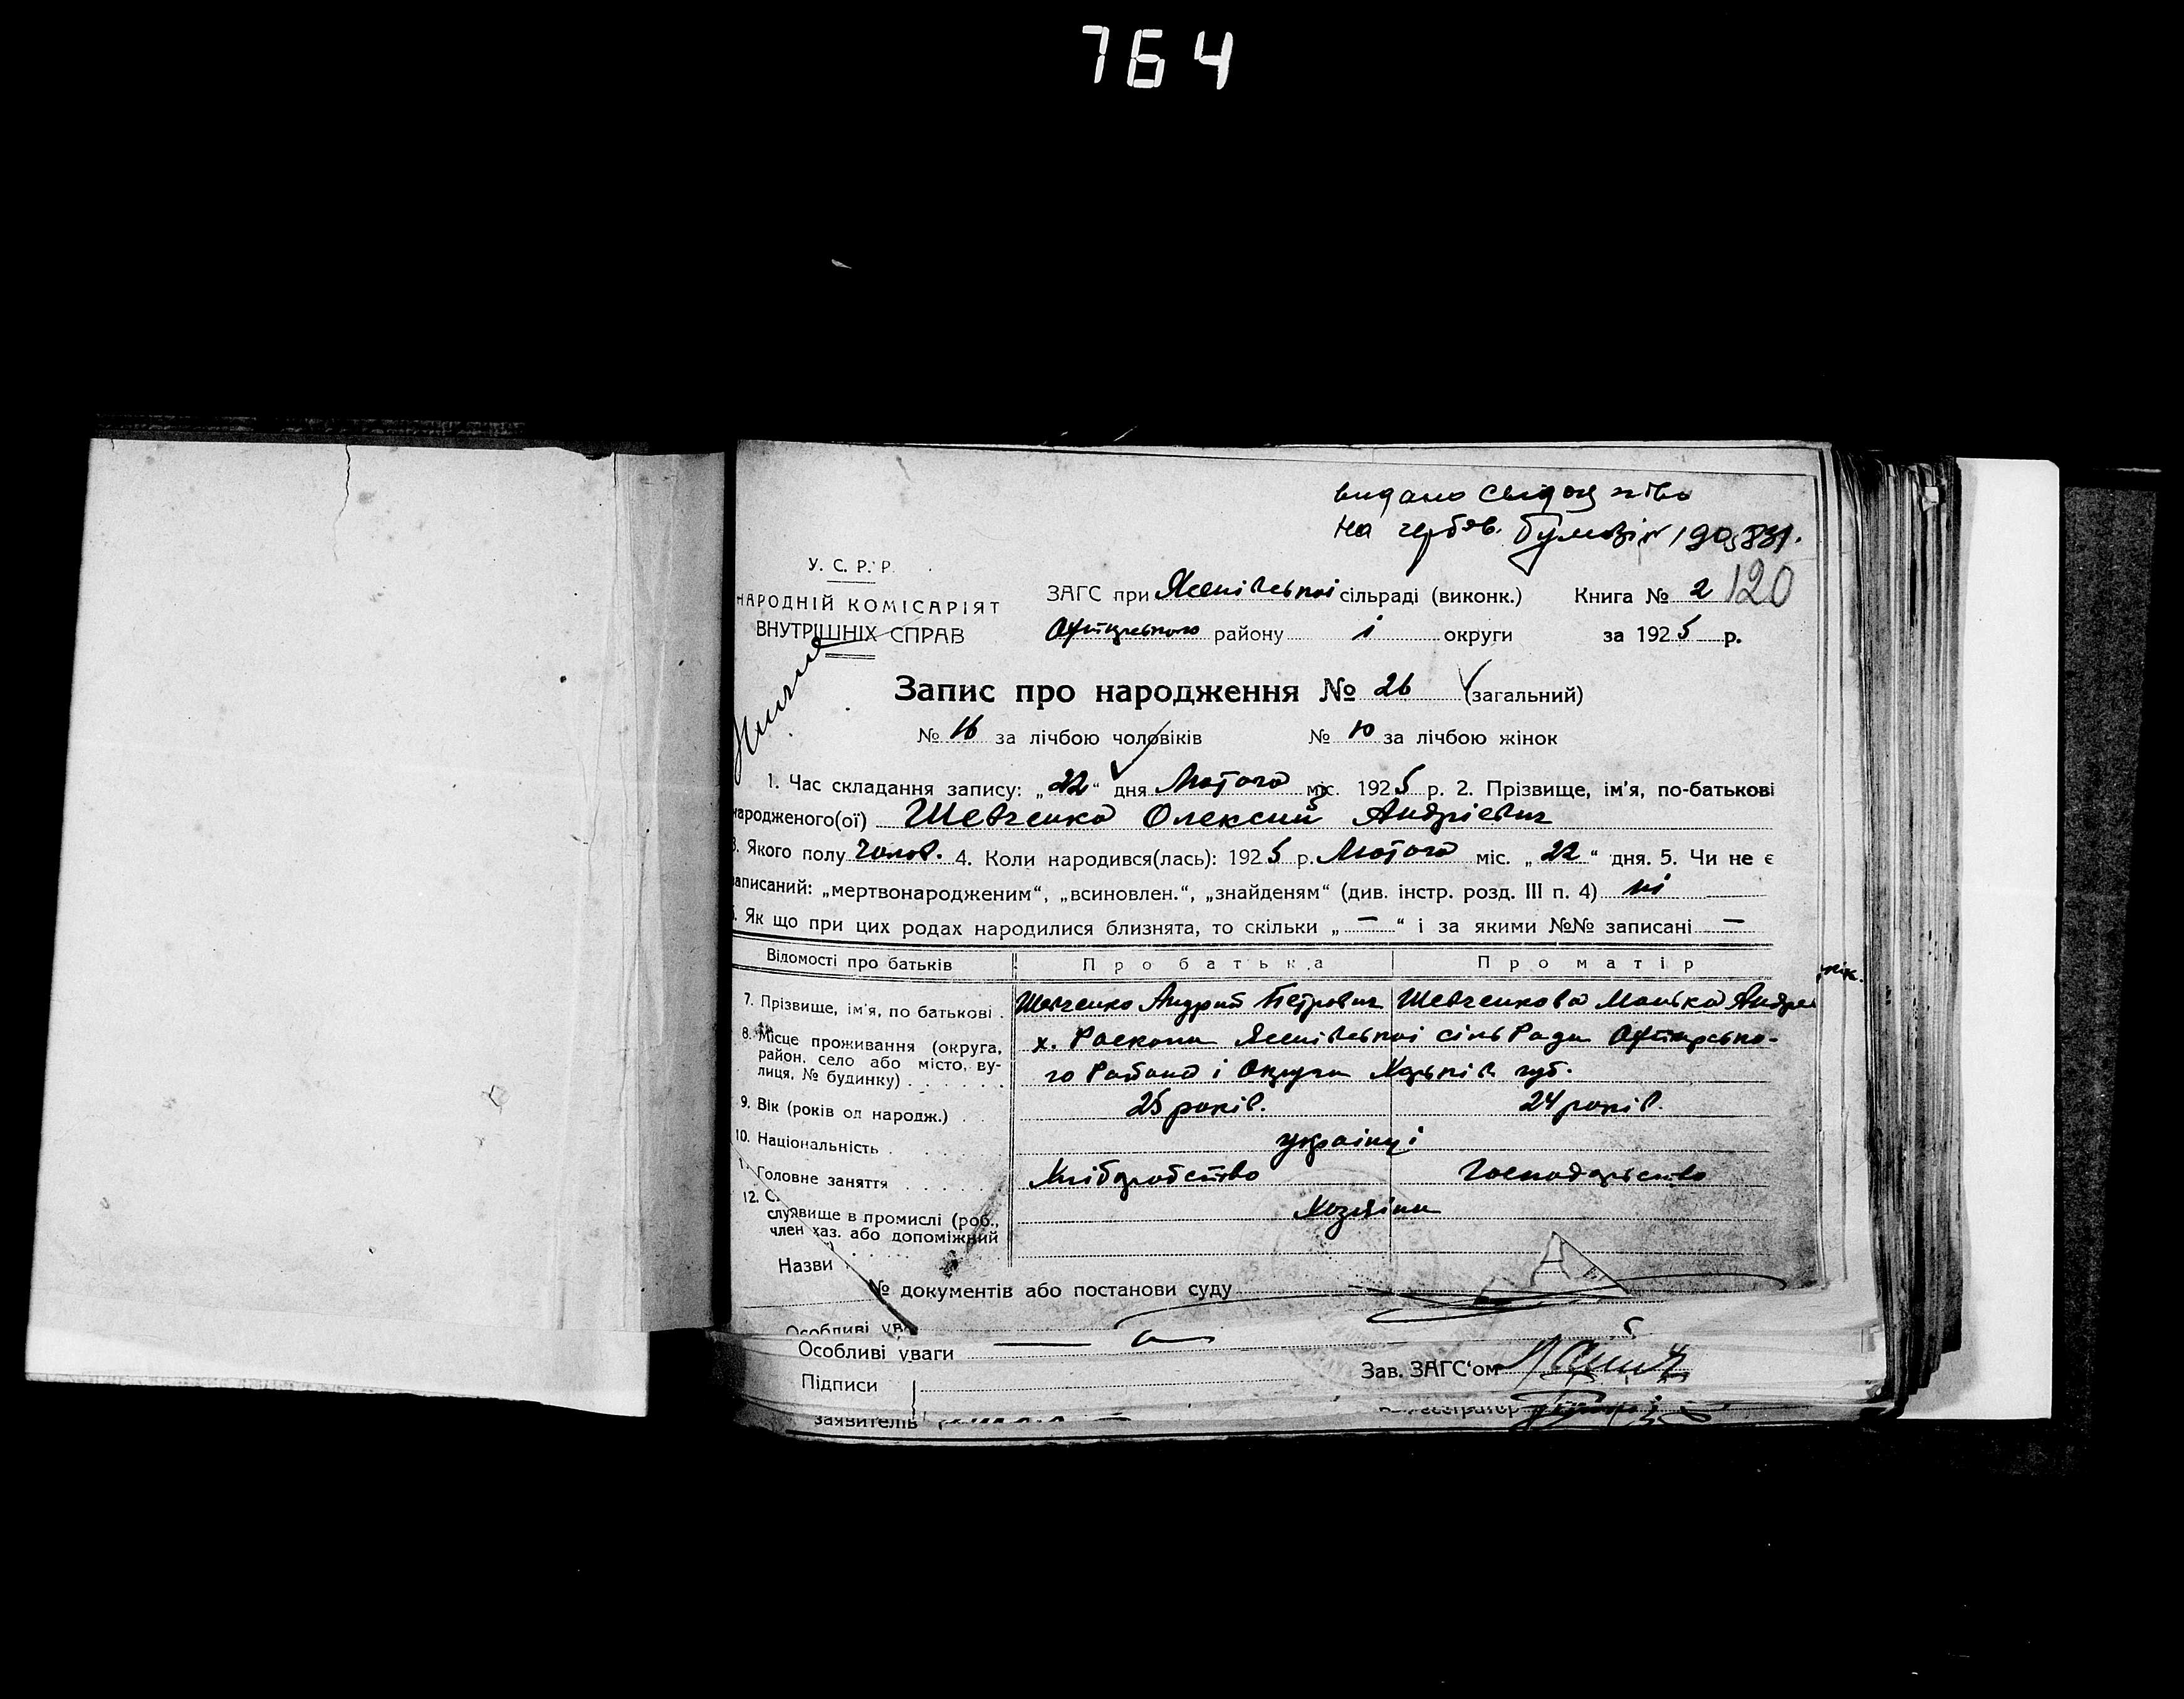 764
видано свідоцтво
на гербов. бумазі №
У. С. Р. Р.
НАРОДНІЙ КОМІСАРІЯТ
ВНУТРІШНІХ СПРАВ
ЗАГС при Ясенівської сільраді (виконк.) Книга № 2 120
Охтирського району і округи за 1925 р.
Запис про народження № 26 (загальний)
№ 16 за лічбою чоловіків № 10 за лічбою жінок
1. Час складання запису: „22" дня Лютого міс. 1925 р. 2. Прізвище, ім'я, по-батькові
народженого(ої) Шевченко Олексий Андріевич
3. Якого полу Чолов. 4. Коли народився(лась): 1925 р. Лютого міс. „22" дня. 5. Чи не є
записаний: „мертвонародженим", „всиновлен.", „знайденям" (див. інстр. розд. III п. 4) ні
6. Як що при цих родах народилися близнята, то скільки „—" і за якими №№ записані —
Відомості про батьків Про батька Про матір
7. Прізвище, ім'я, по батькові Шевченко Андрий Петрович Шевченкова Манька Андре
8. Місце проживання (округа, район, село або місто, вулиця, № будинку)
х. Раскопи Ясенівської сільРади Охтирсько-
го Району і Округи Харьків губ.
9. Вік (років од народж.) 25 років. 24 років.
10. Національність українці
Головне заняття Хліборобство Господарьство
12. С
службище в промислі (роб., член хаз. або допоміжний Хозяїни
Назви № документів або постанови суду
Особливі ува
Особливі уваги
Зав. ЗАГС'ом
Підписи
заявителів